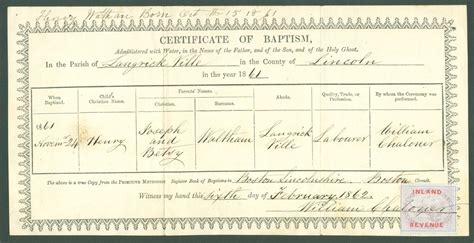 Henry Waltham Born Oct th 15 1861
CERTIFICATE OF BAPTISM,
Administered with Water, in the Name of the Father, and of the Son, and of the Holy Ghost,
In the Parish of Langrick Ville in the County of Lincoln
in the year 1861
When Baptized. Child's Christian Name. Parents' Names. Christian. Surnames. Abode. Quality, Trade, or Profession. By whom the Ceremony was performed.
1861
Novem 24 Henry Joseph and Betsy Waltham Langrick Ville Labourer William Chaloner
The above is a true Copy from the PRIMITIVE METHODIST Register Book of Baptisms in Boston Lincolnshire, Boston
Witness my hand this sixth day of February 1862
William Chaloner
INLAND
REVENUE